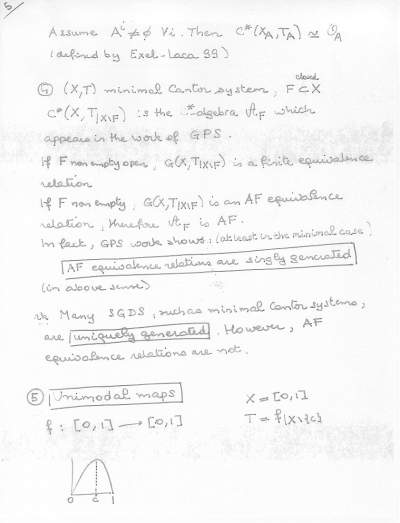 5
Assume Aⁱ ≠ ∅ ∀i. Then C*(X_A, T_A) ≃ O_A
(defined by Exel-Laca 99)
④ (X,T) minimal Cantor system, F closed ⊂ X
C*(X, T|X\F) is the *algebra A_F which
appears in the work of GPS.
if F non empty open, G(X,T|X\F) is a finite equivalence
relation
if F non empty, G(X,T|X\F) is an AF equivalence
relation, therefore A_F is AF.
In fact, GPS work shows: (at least in the minimal case)
AF equivalence relations are singly generated
(in above sense)
Many SGDS, such as minimal Cantor systems,
are uniquely generated. However, AF
equivalence relations are not.
⑤ Unimodal maps
X = [0,1]
f : [0,1] → [0,1]
T = f|X\{c}
0 c 1